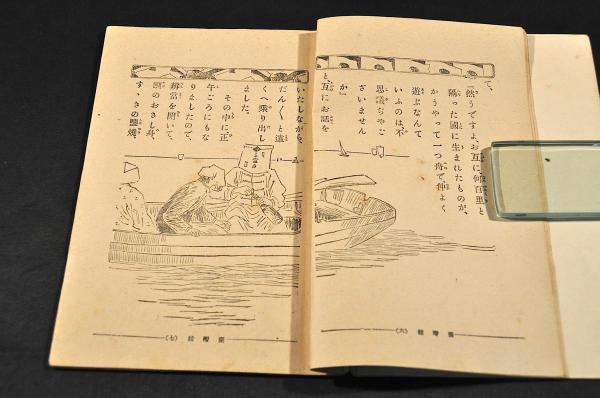 て、
『然うですよ、お互に、何百里と
隔つた國に生まれたものが、
かうやつて一つ舟で、仲よく
遊ぶなんて
いふのは、不
思議ぢやご
ざいません
か』
と、互にお話を
いたしながら、
だん〲と遠
くへ乘り出し
ました。
その中に正
午ごろにもな
りましたので、
辨當を開いて、
鯛のおさし身、
すゞきの鹽燒、
(六)
(七)